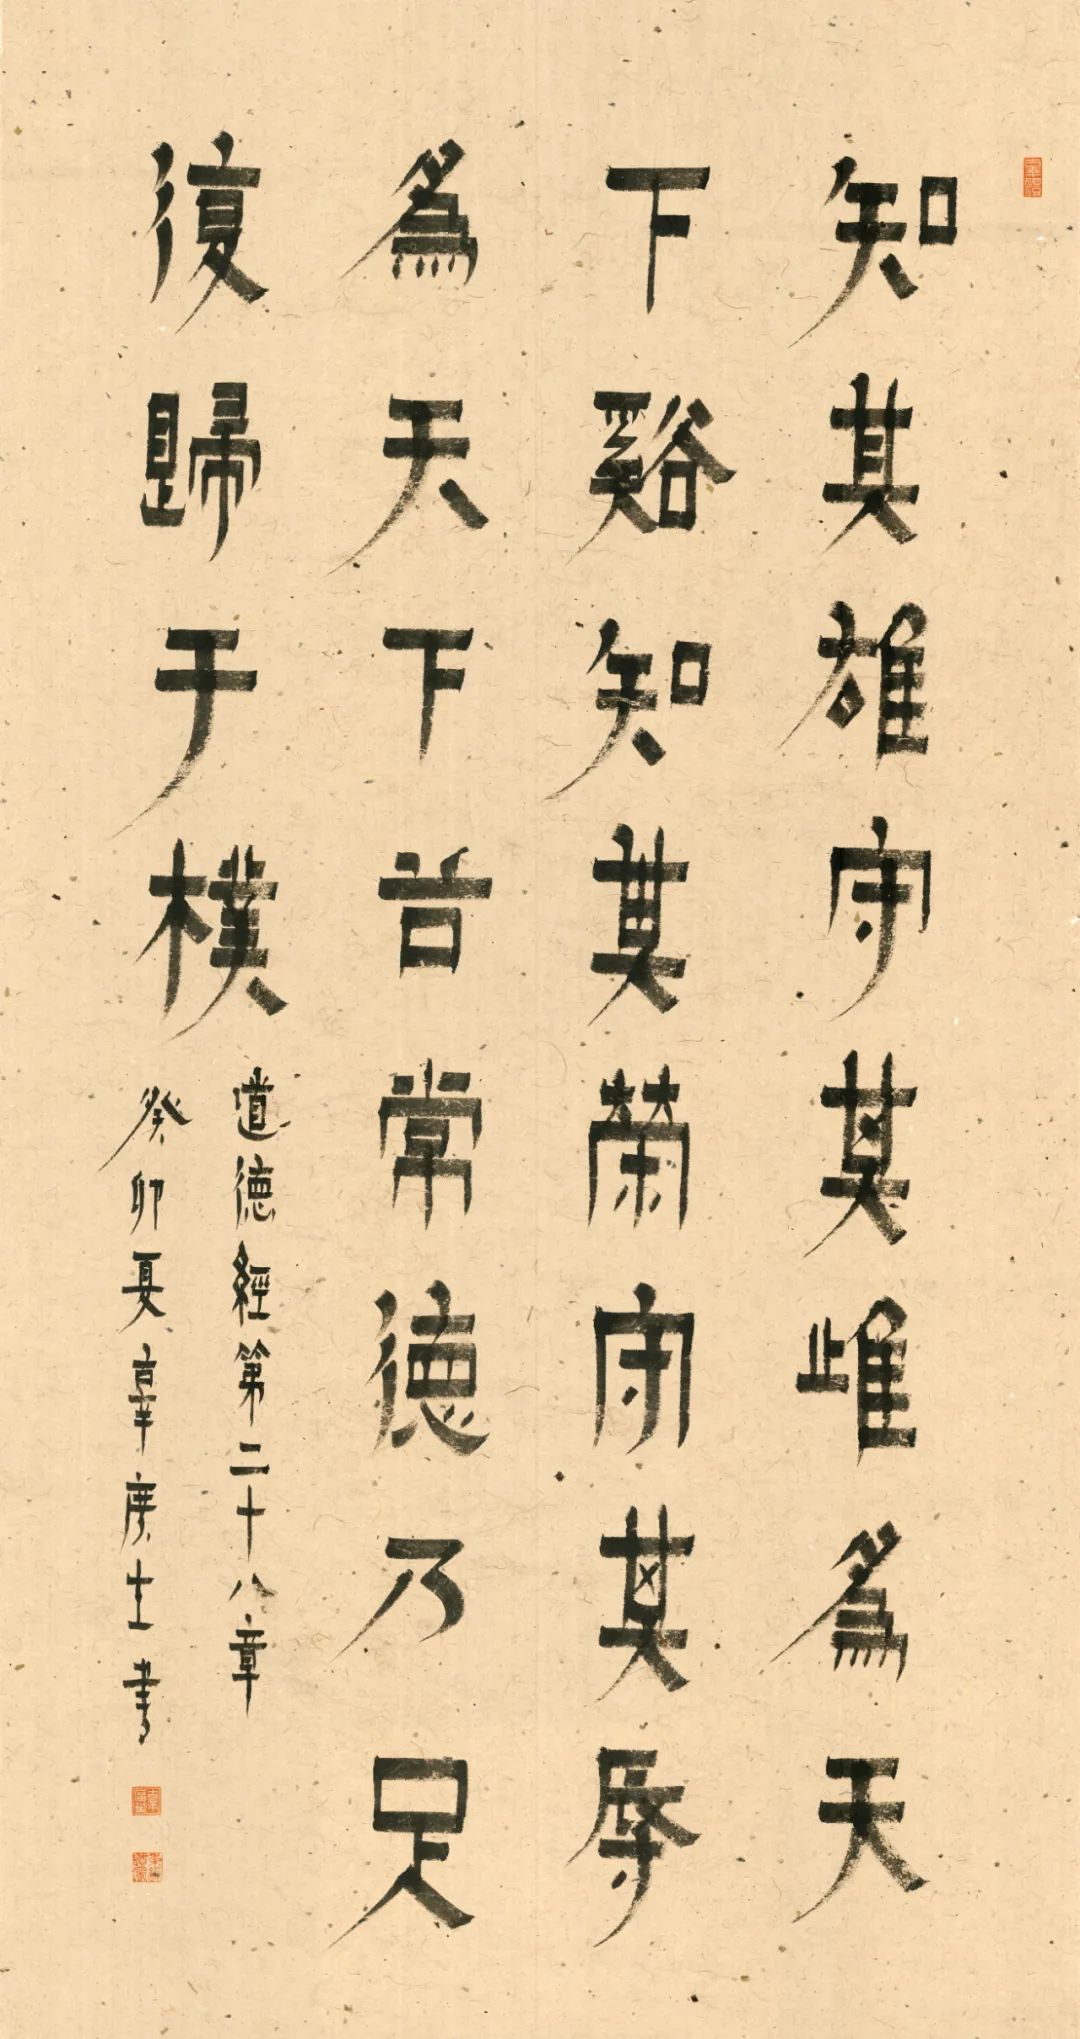 知其雄守其雌為天
下谿知其榮守其辱
為天下谷常德乃足
復歸于樸
道德經第二十八章
癸卯夏辜士書